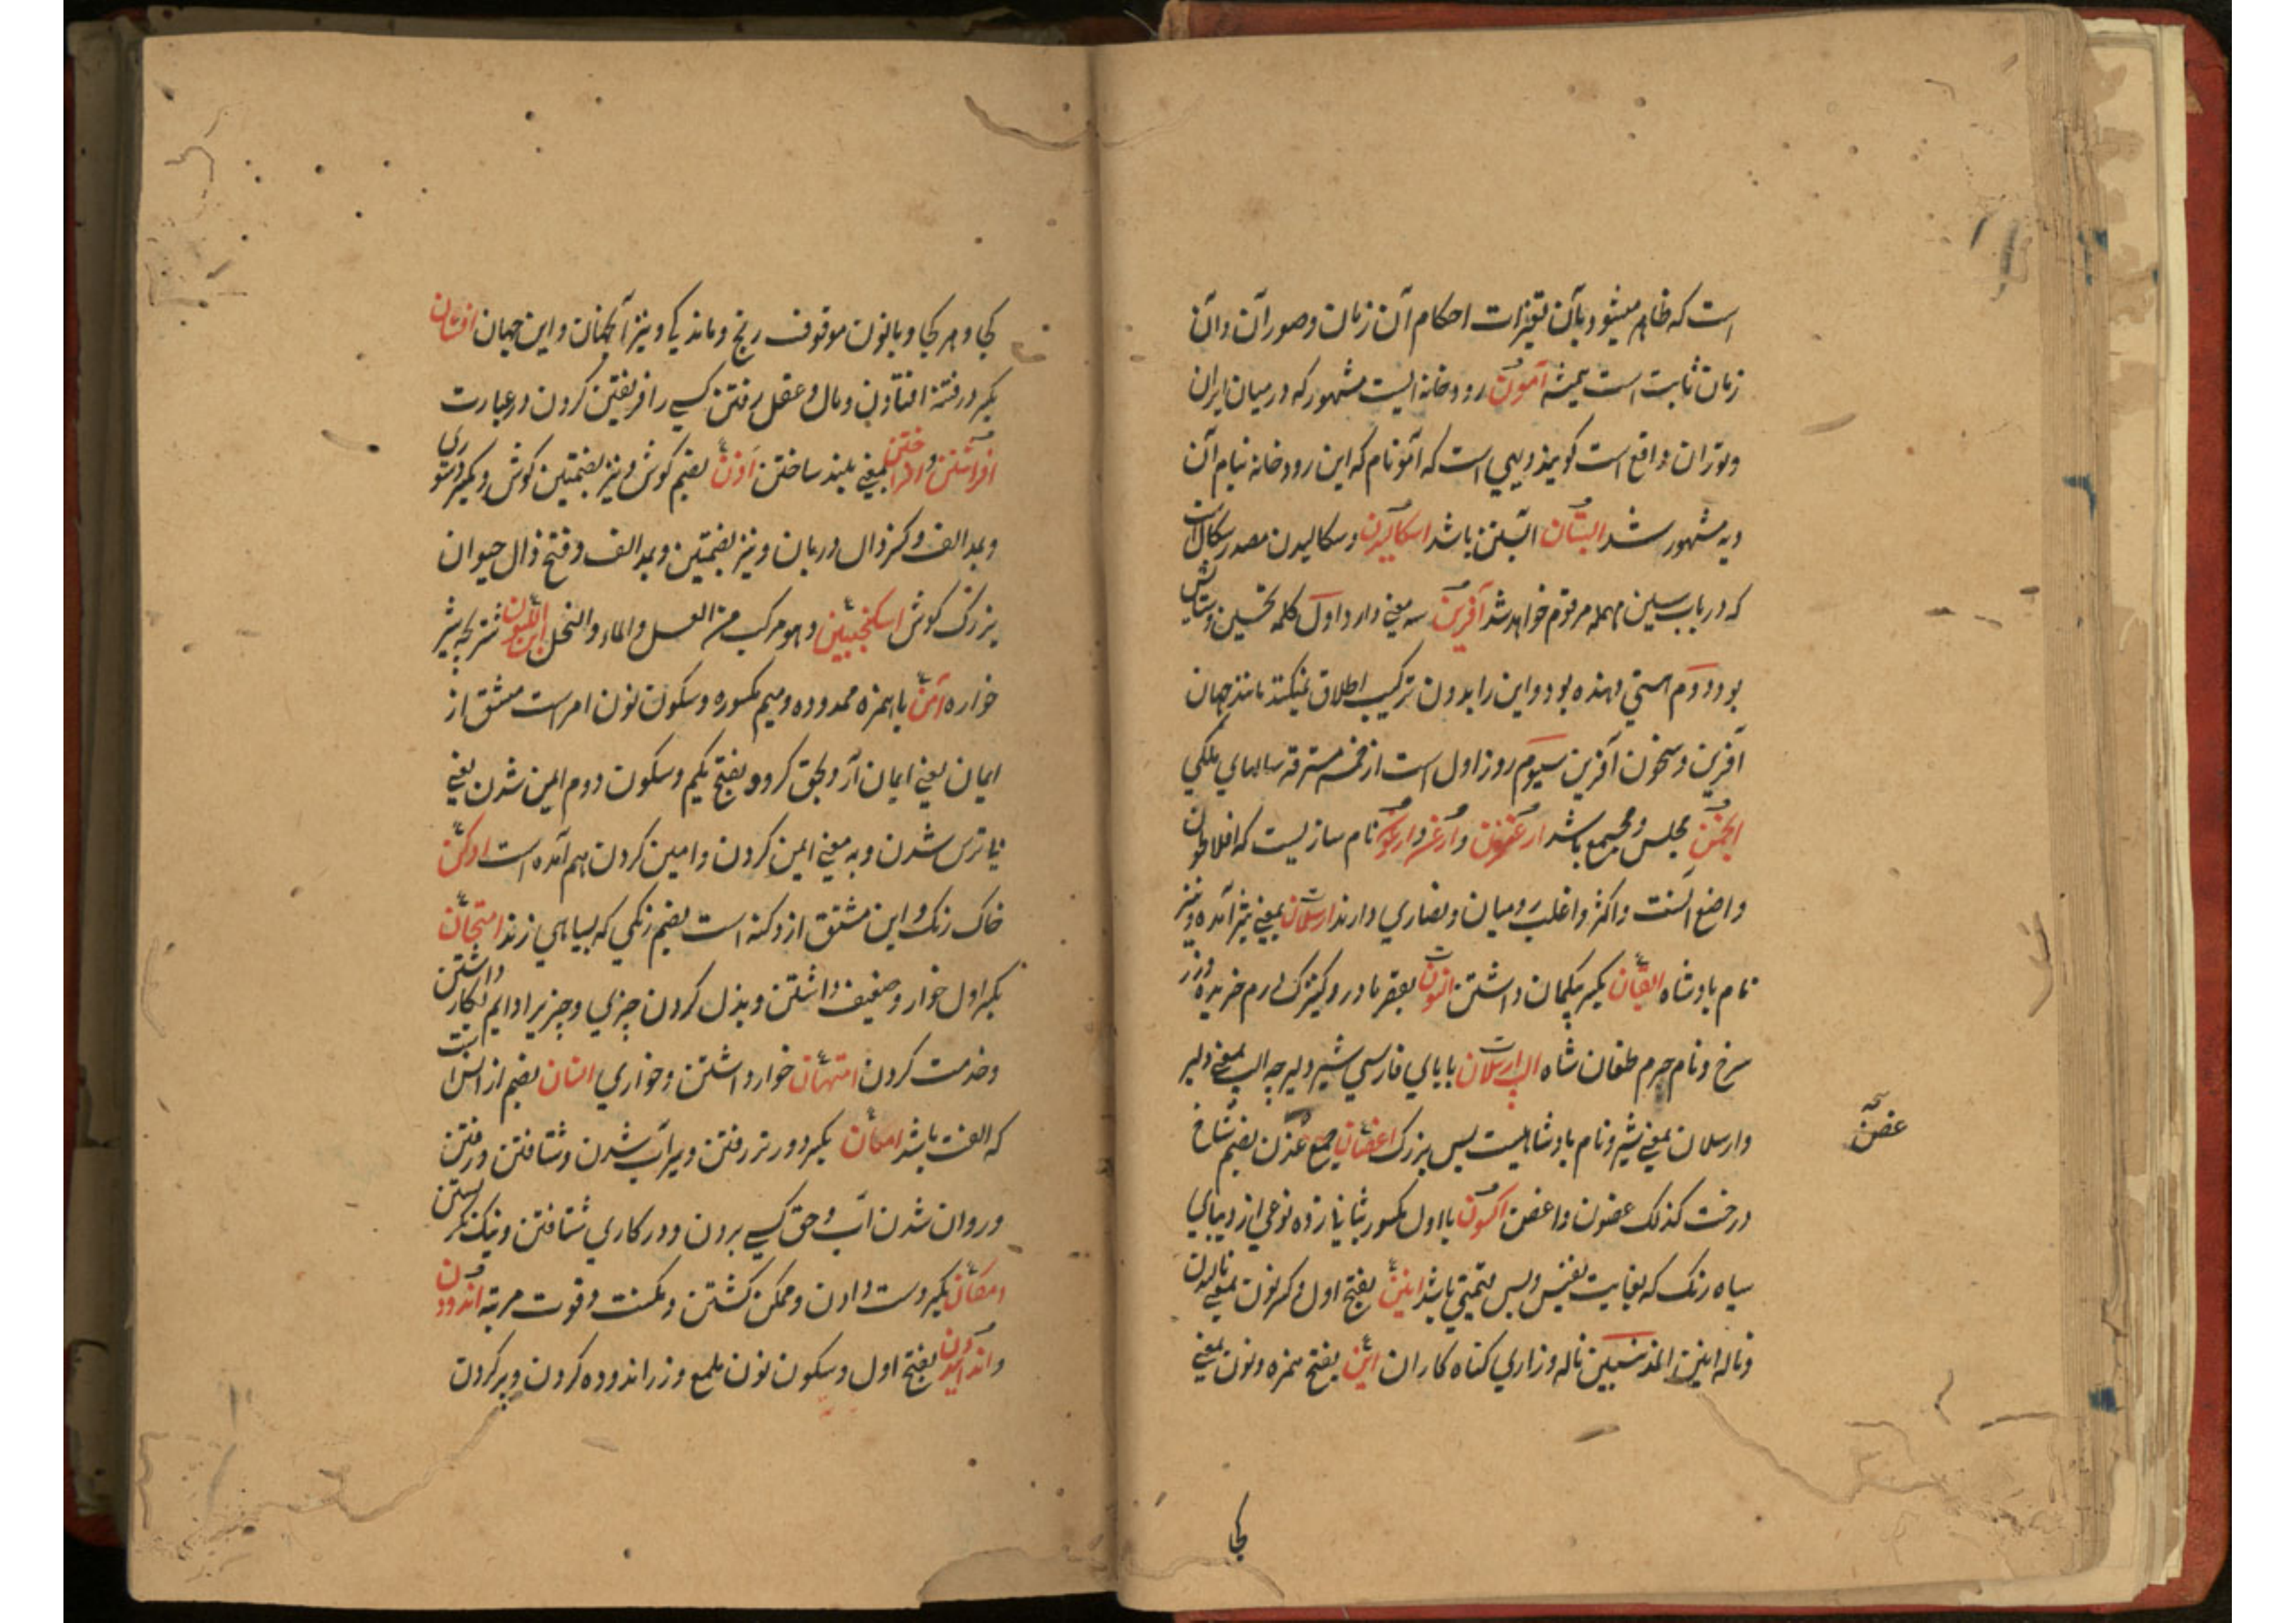 است که ظاهر میشود بآن تغیرات احکام آن زمان و صور آن و آن
زمان ثابت است همیشه آمون رودخانه ایست مشهور که در میان ایران
و توران واقع است کویند دیهی است که آمو نام که این رودخانه بنام آن
دیه مشهور شد ابستان آبستن باشد اسکالیدن و سکالیدن مصدر سکال است
که در باب سین مهمله مرقوم خواهد شد آفرین سه معنی دارد اول کلمه تحسین و ستایش
بود دوم هستی دهنده بود و این را بدون ترکیب اطلاق نمیکنند مانند جهان
آفرین و سخون آفرین سیوم روز اول است از خمسه مسترقه سالهای ملکی
انجمن مجلس و مجمع باشد ارغنون و ارغن و ارغنو نام سازیست که افلاطون
واضع آنست و اکثر و اغلب رومیان و نصاری دارند ارسلان بمعنی شیر آمده و نیز
نام بادشاه ایقان بکسر یکم بیکمان داشتن
سرخ و نام حرم طغان شاه الب ارسلان بابای فارسی شیر دلیر چه الب بمعنی دلیر
و ارسلان بمعنی شیر و نام بادشاهیست بس بزرک اغصان جمع غصن بضم شاخ
درخت کذلک غصون و اغصن اکسون با اول مکسور بثانی زده نوعی از دیبای
سیاه رنک که بغایت نفیس و بس قیمتی باشد انین بفتح اول و کسر نون بمعنی نالیدن
و ناله انین المذنبین ناله و زاری کناه کاران این بفتح همزه و نون بمعنی
غصن
کجا
کجا و هر کجا و بانون موقوف رنج و ماندکی و نیز آنجهان و این جهان افتنان
بکسر در فتنه افتادن و مال و عقل رفتن کسی را فریفتن کردن در عبارت
افراشتن و افراختن بمعنی بلند ساختن اذن بضم کوش و نیز بضمتین کوش و بکسر دستوری
و بمد الف و کسر ذال دربان و نیز بضمتین و بمد الف و فتح ذال حیوان
بزرک کوش اسکنجبین و هو مرکب من العسل والماء والنحل ابن اللبون شتر بچه شیر
خواره آمن با همزه ممدوده و میم مکسوره و سکون نون امر است مشتق از
ایمان یعنی ایمان آر و بحق کرو و بفتح یکم و سکون دوم ایمن شدن یعنی
بی ترس شدن و به معنی ایمن کردن و امین کردن هم آمده است ادکن
خاک رنک و این مشتق از دکنه است بضم رنکی که بسیاهی زند امتهان
بکسر اول خوار و ضعیف داشتن و بذل کردن چیزی و چیزیرا دایم بکار داشتن
و خدمت کردن امتهان خوار داشتن و خواری انسان بضم از انس است
که الفت باشد امعان بکسر دورتر رفتن و سیراب شدن و شتافتن و رفتن
و روان شدن آب و حق کسی بردن و در کاری شتافتن و نیک نکریستن
امکان بکسر دست دادن و ممکن کشتن و مکنت و قوت مرتبه اندودن
و اندائیدن بفتح اول و سکون نون ملمع و زر اندوده کردن و پر کردن